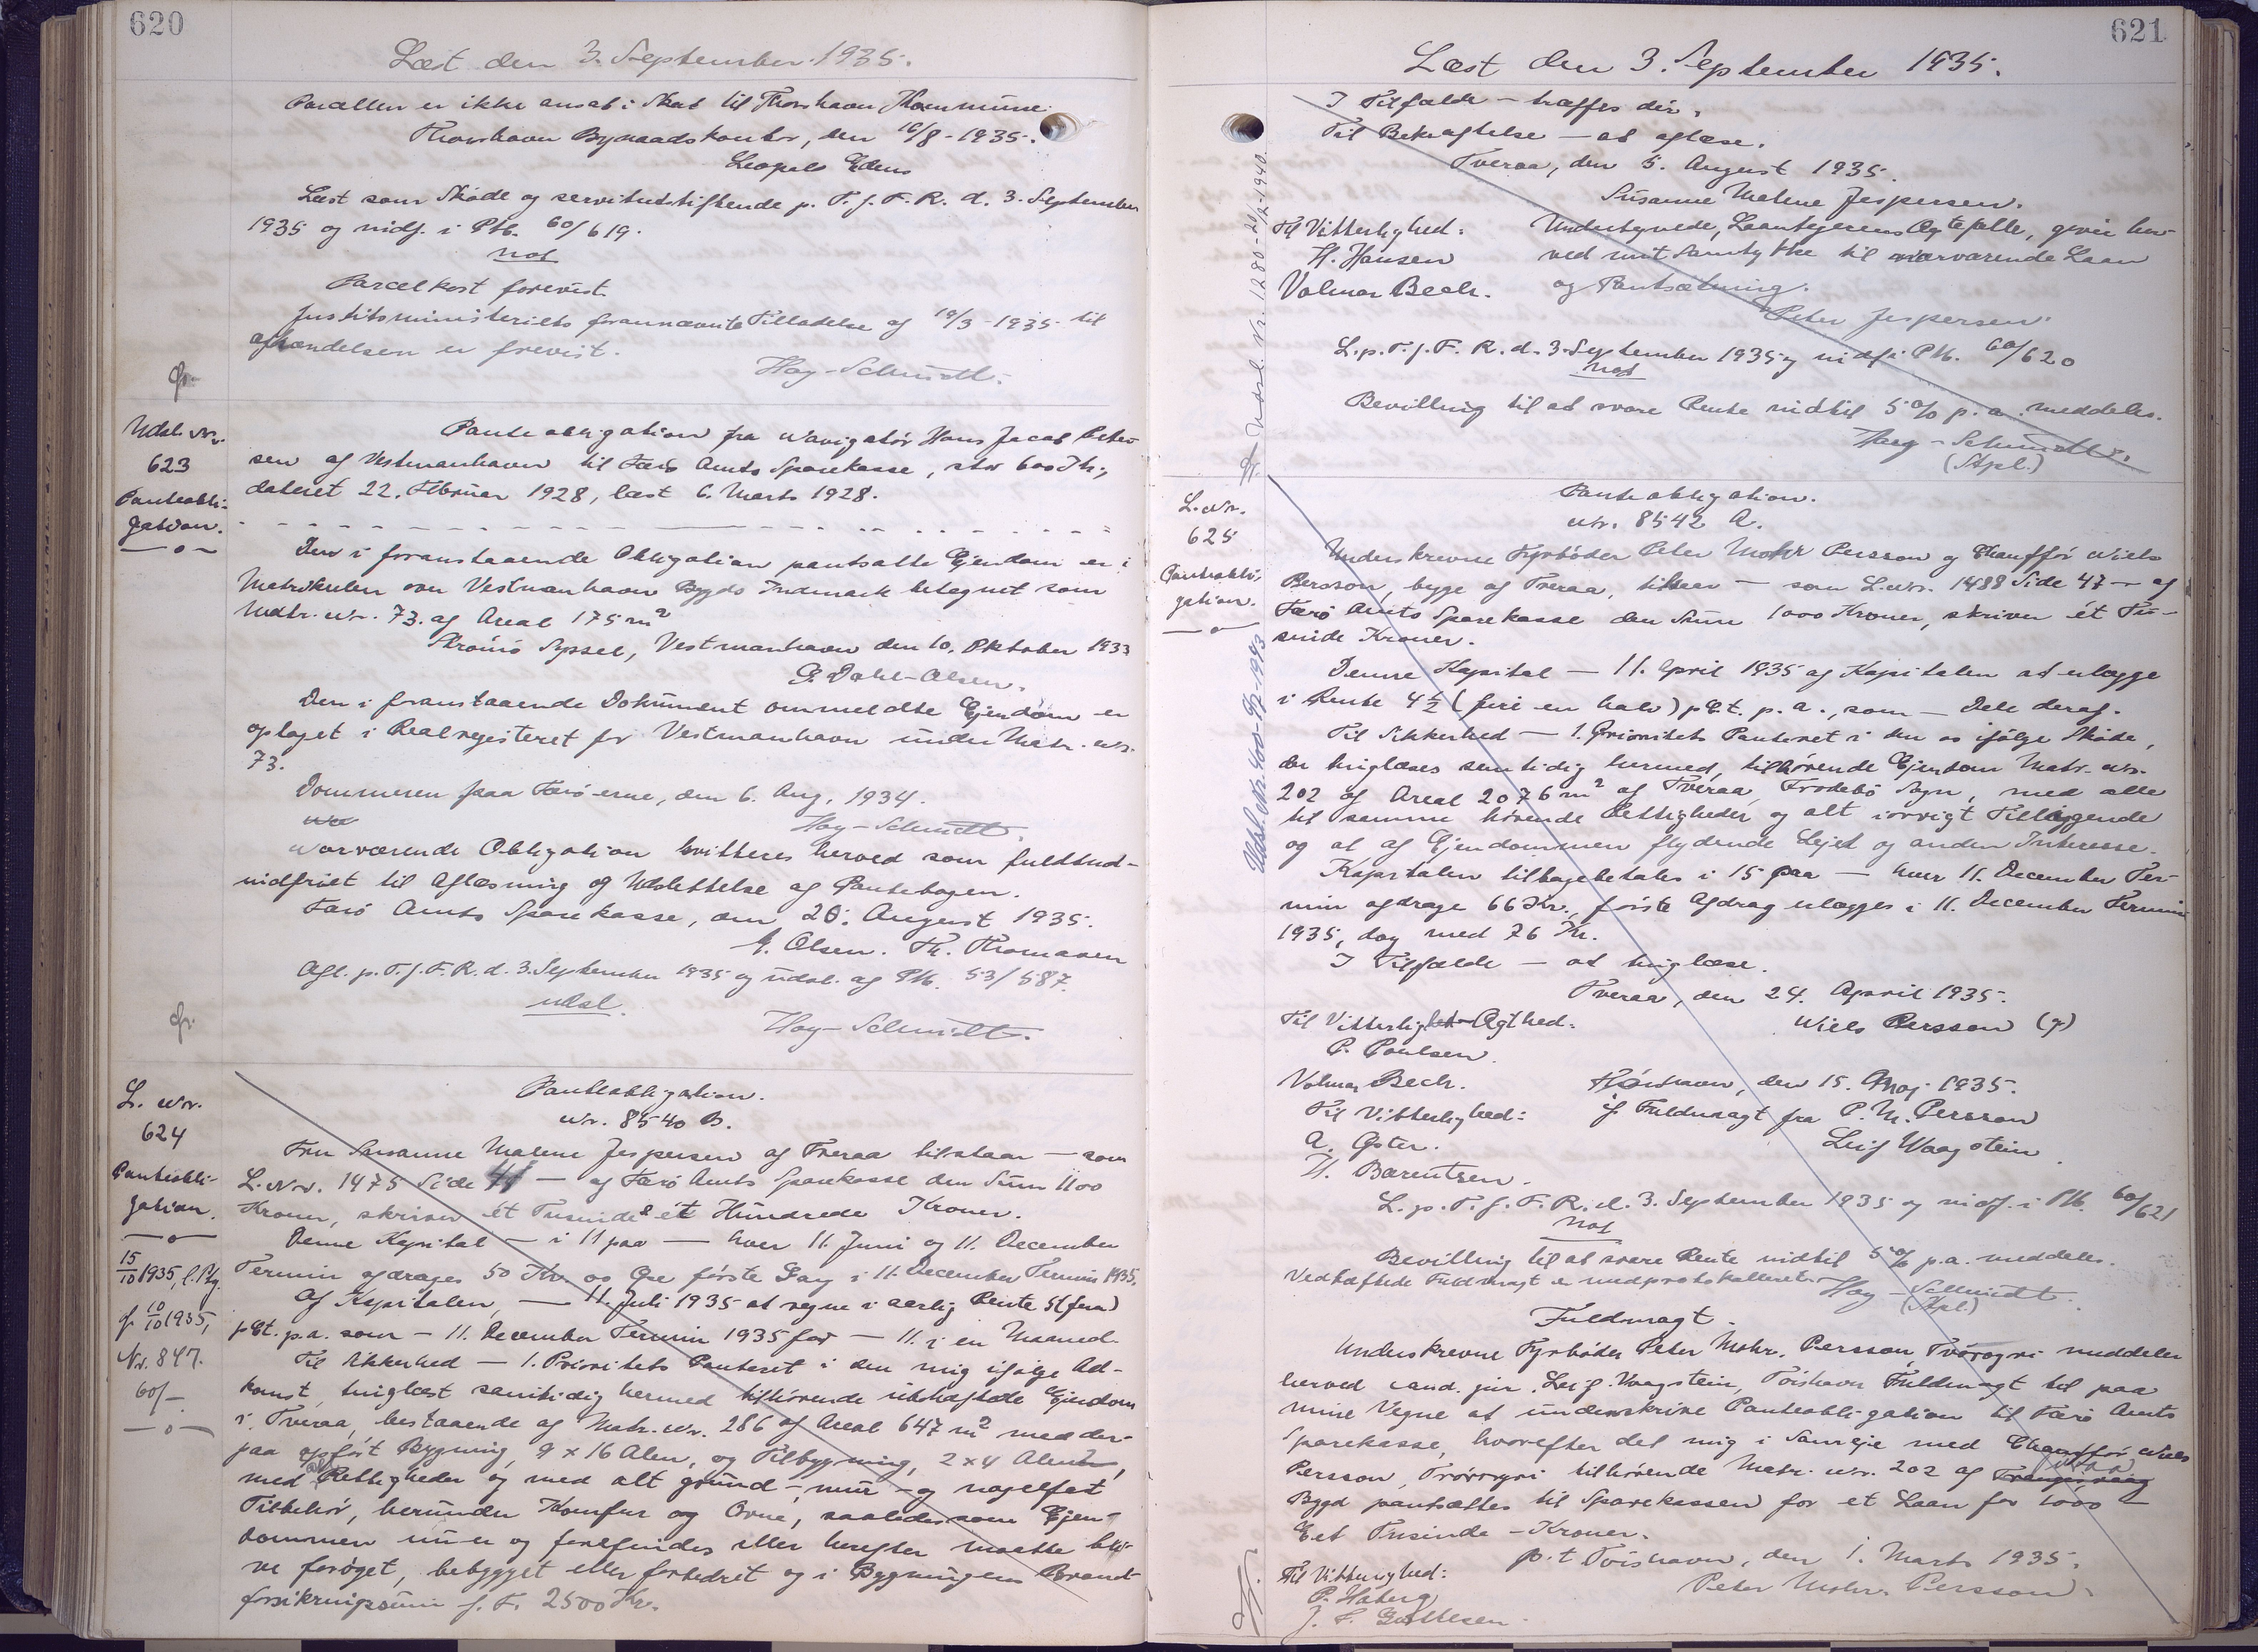 620
Læst den 3. September 1935.
Parcellen er ikke ansat i Skat til Thorshavn Kommune.
Thorshavn Byraadskontor, den 16/8 - 1935.
Læst som Skøde og servitutstiftende p. T. f. F. R. d. 3. September
1935 og indf. i Ptb. 60/619.
not
Parcelkort forevist.
Justitsministeriets forannævnte Tilladelse af 19/3 - 1935 til
afhændelsen er forevist.
Hay-Schmidt.
Udsl. Nr.
623
Panteobli-
gation.
Panteobligation fra Navigatør Hans Jacob Peter-
sen af Vestmanhavn til Færø Amts Sparekasse, stor 600 Kr.,
dateret 22. Februar 1928, læst 6. Marts 1928.
Den i foranstaaende Obligation pantsatte Ejendom er i
Matrikulen over Vestmanhavn Bygds Indmark betegnet som
Matr. Nr. 73. af Areal 175 m²
Strømø Syssel, Vestmanhavn den 10. Oktober 1933
G. Dahl-Olsen.
Den i foranstaaende Dokument ommeldte Ejendom er
optaget i Realregisteret for Vestmanhavn under Matr. Nr.
73.
Dommeren paa Færøerne, den 6. Aug. 1934.
Hay-Schmidt.
Nærværende Obligation kvitteres herved som fuldtud
indfriet til Aflæsning og Udslettelse af Pantebogen.
Færø Amts Sparekasse, den 20. August 1935.
J. Olsen. Th. Thomasen
Afl. p. T. f. F. R. d. 3. September 1935 og udsl. af Ptb. 53/587.
udsl.
Hay-Schmidt.
L. Nr.
624
Panteobli-
gation.
15/10 1935, l. Ptg.
af 10/10 1935,
Nr. 847.
60/-
Panteobligation.
Nr. 8540 B.
Fru Susanne Malene Jespersen af Tveraa tilstaar — som
L. Nr. 1475 Side 41 — af Færø Amts Sparekasse den Sum 1100
Kroner, skriver ét Tusinde ét Hundrede Kroner.
Denne Kapital — i 11 paa — hver 11. Juni og 11. December
Termin afdrages 50 Kr. 00 Øre første Gang i 11. December Termin 1935.
Af Kapitalen — 11. Juli 1935 at regne i aarlig Rente 5 (fem)
pCt. p.a. som — 11. December Termin 1935 for — 11. i en Maaned.
Til Sikkerhed — 1. Prioritets Panteret i den mig ifølge Ad-
komst, tinglæst samtidig hermed tilhørende ubehæftede Ejendom
i Tveraa, bestaaende af Matr. Nr. 286 af Areal 647 m² med der-
paa opført Bygning, 9 x 16 Alen, og Tilbygning, 2 x 4 Alen,
med alle Rettigheder og med alt grund-, mur- og nagelfast
Tilbehør, herunder Komfur og Ovne, saaledes som Ejen-
dommen nu er og forefindes eller herefter maatte bli-
ve forøget, bebygget eller forbedret og i Bygningens Brand-
forsikringssum f. T. 2500 Kr.
621
Læst den 3. September 1935.
I Tilfælde — træffes dér.
Til Bekræftelse — at aflæse.
Tveraa, den 5. August 1935.
Susanne Malene Jespersen.
Til Vitterlighed:
H. Hansen
Valmar Bech.
Undertegnede, Laantagerens Ægtefælle, giver her-
ved mit Samtykke til nærværende Laan
og Pantsætning.
Peter Jespersen.
L. p. T. f. F. R. d. 3. September 1935 og indf. i Ptb. 60/620
not
Bevilling til at svare Rente indtil 5 % p. a. meddeles.
Hay-Schmidt.
(Stpl.)
L. Nr.
625
Panteobli-
gation.
Panteobligation.
Nr. 8542 A.
Underskrevne Fyrbøder Peter Mohr Persson og Chauffør Niels
Persson, begge af Tveraa, tilstaar — som L. Nr. 1488 Side 47 — af
Færø Amts Sparekasse den Sum 1000 Kroner, skriver ét Tu-
sinde Kroner.
Denne Kapital — 11. April 1935 af Kapitalen at erlægge
i Rente 4½ (fire en halv) pCt. p. a., som — Dele deraf.
Til Sikkerhed — 1. Prioritets Panteret i den os ifølge Skøde,
der tinglæses samtidig hermed, tilhørende Ejendom Matr. Nr.
202 af Areal 2076 m² af Tveraa, Frodebø Sogn, med alle
til samme hørende Rettigheder og alt iøvrigt Tilliggende
og al af Ejendommen flydende Leje og anden Interesse.
Kapitalen tilbagebetales i 15 paa — hver 11. December Ter-
min afdrage 66 Kr., første Afdrag erlægges i 11. December Termin
1935, dog med 76 Kr.
I Tilfælde — at tinglæse.
Tveraa, den 24. April 1935.
Til Vitterlighed Ægthed:
P. Poulsen.
Valmar Bech.
Niels Persson (q)
Thorshavn, den 15. Maj 1935.
Til Vitterlighed:
if Fuldmagt fra P. M. Persson
Leif Waagstein.
H. Barentsen.
L. p. T. f. F. R. d. 3. September 1935 og indf. i Ptb. 60/621
not
Bevilling til at svare Rente indtil 5 % p.a. meddeles.
Vedhæftede Fuldmagt er medprotokolleret.
Hay-Schmidt.
(Stpl.)
Fuldmagt.
Underskrevne Fyrbøder Peter Mohr. Persson, Tvøroyri meddeler
herved cand. jur. Leif Waagstein, Tórshavn Fuldmagt til paa
mine Vegne at underskrive Panteobligation til Færø Amts
Sparekasse, hvorefter det mig i Sameje med Chauffør Niels
Persson, Tvøroyri tilhørende Matr. Nr. 202 af
Bygd pantsættes til Sparekassen for et Laan for 1000 —
Eet Tusinde — Kroner.
p.t. Tórshavn, den 1. Marts 1935.
Til Vitterlighed:
P. Haberg
Peter Mohr. Persson.
Udsl. Nr. 1280 - 1940
Udsl. Nr. 400 1943